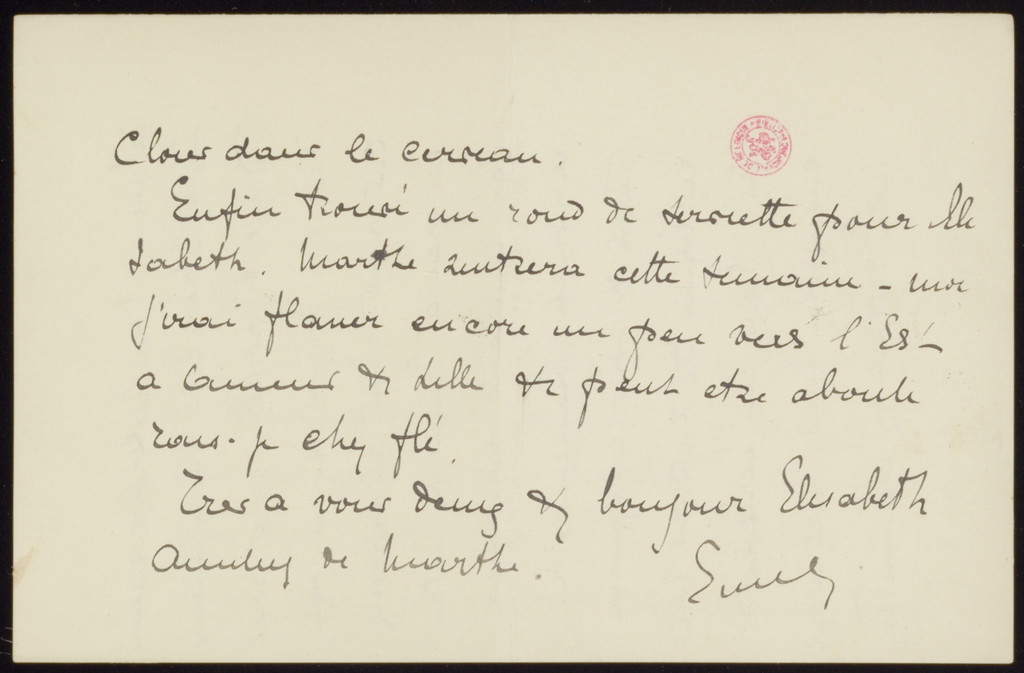 Clous dans le cerveau.
Enfin trouvé un rond de serviette pour Eli
sabeth. Marthe rentrera cette semaine - moi
j'irai flaner encore un peu vers l'Es-
a & Lille & peut etre aboute
rons-je chez flé.
Tres a vous deux & bonjour Elisabeth
de Marthe.
Emile